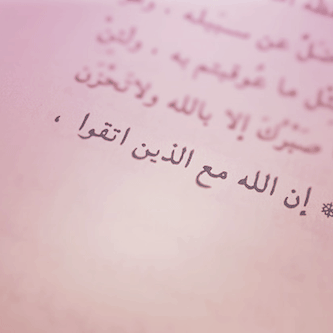 ضل عن سبيله ، وهو
ما عوقبتم به ، ولئن
صبرك إلا بالله ولا تحزن
إن الله مع الذين اتقوا ،